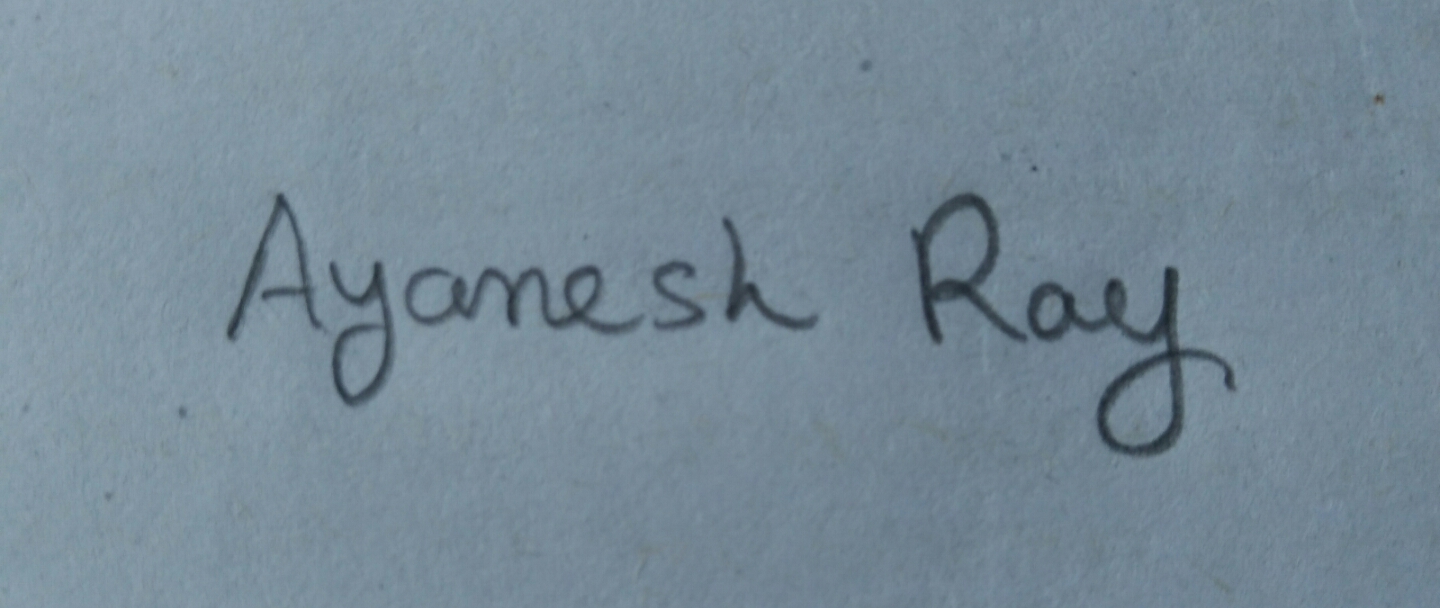 Ayanesh Ray